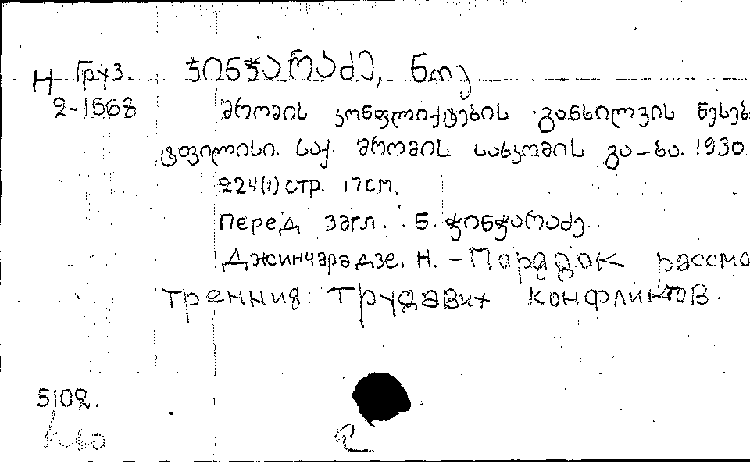 Н Груз. ჯინჯარაძე, ნოე
2-1568 შრომის კონფლიქტების განხილვის წესებ
ტფილისი. საქ. შრომის სახკომის გა-ბა. 1930.
224(1) стр. 17см.
Перед загл. Б. ჯინჯარაძე
Джинчарадзе. Н. - Порядок рассмо
трения трудавых конфликтов.
5102.